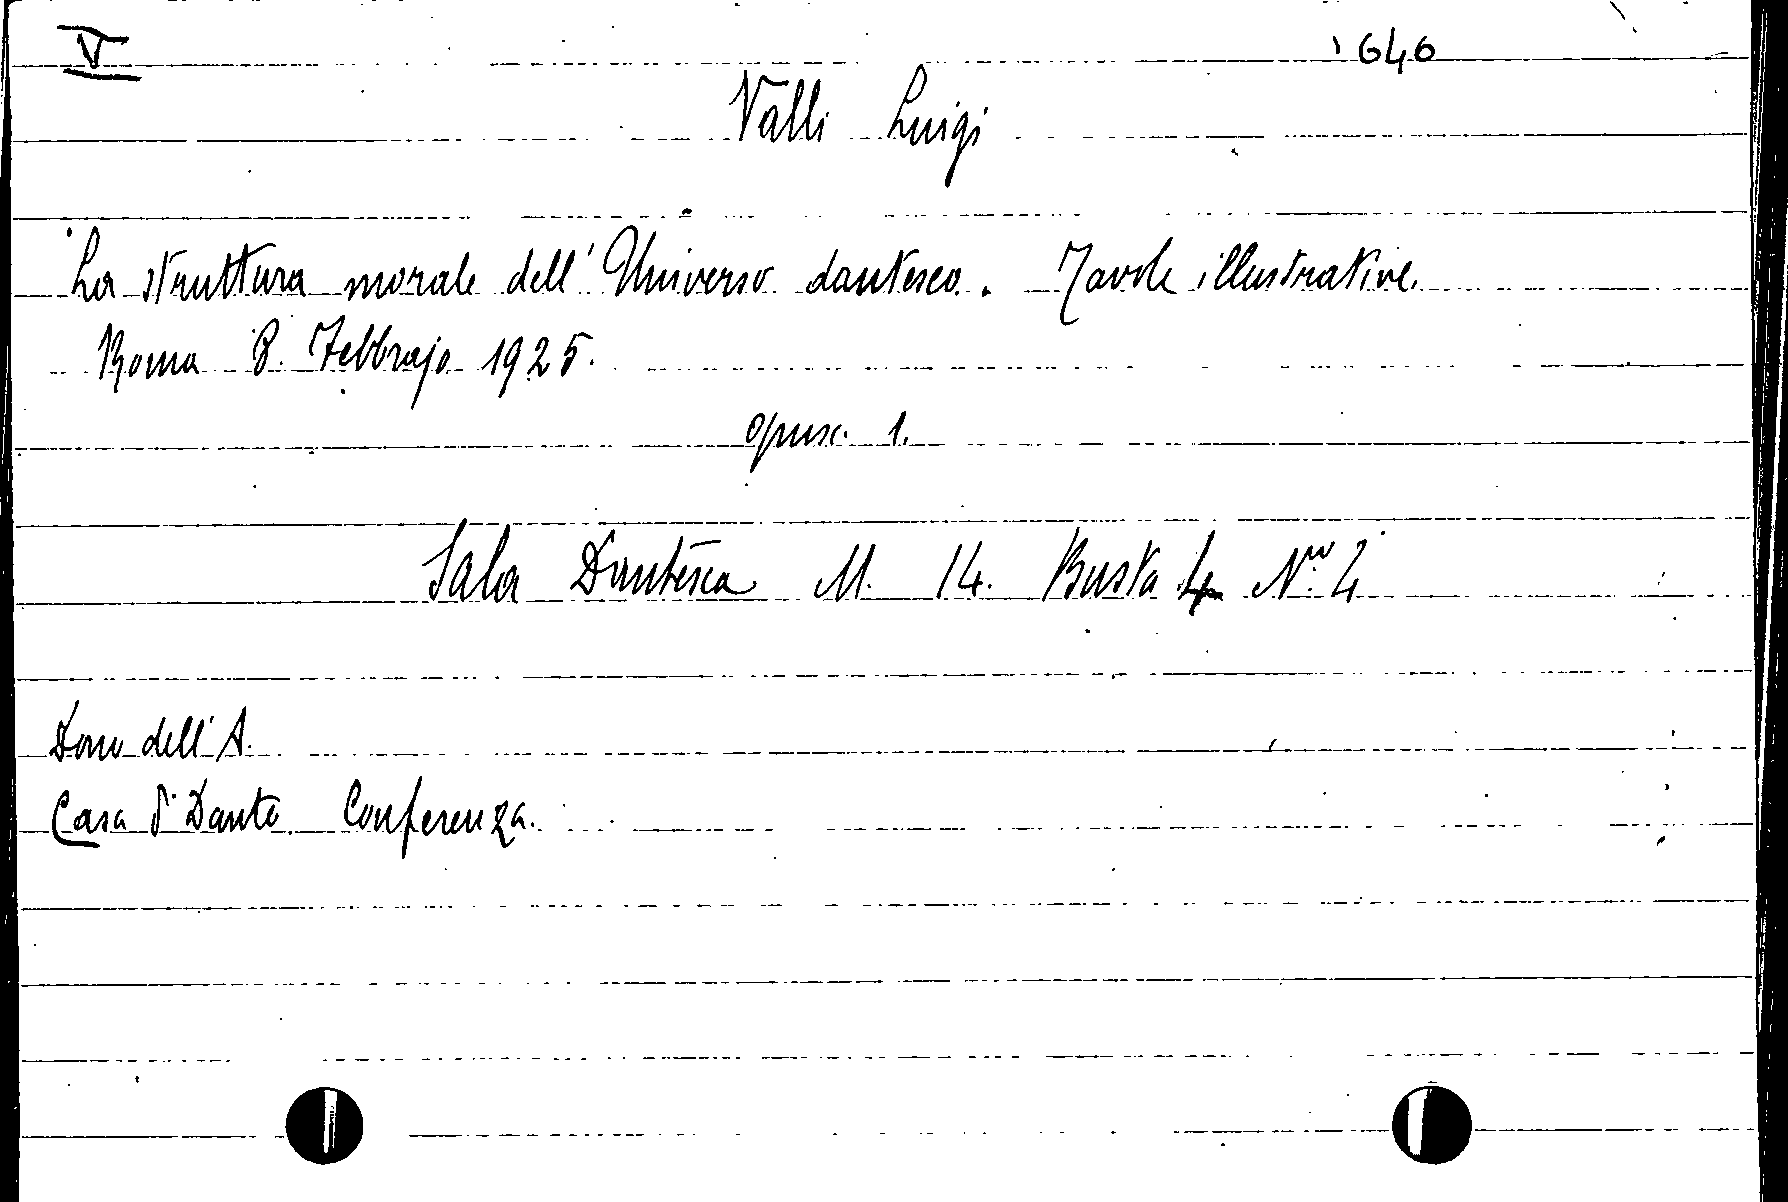 V
646
Valli Luigi
La struttura morale dell'Universo dantesco. Tavole illustrative.
Roma 8. Febbrajo 1925.
opusc. 1.
Sala Dantesca M. 14. Busta 4 N.ro 4
Dono dell'A.
Casa di Dante. Conferenza.